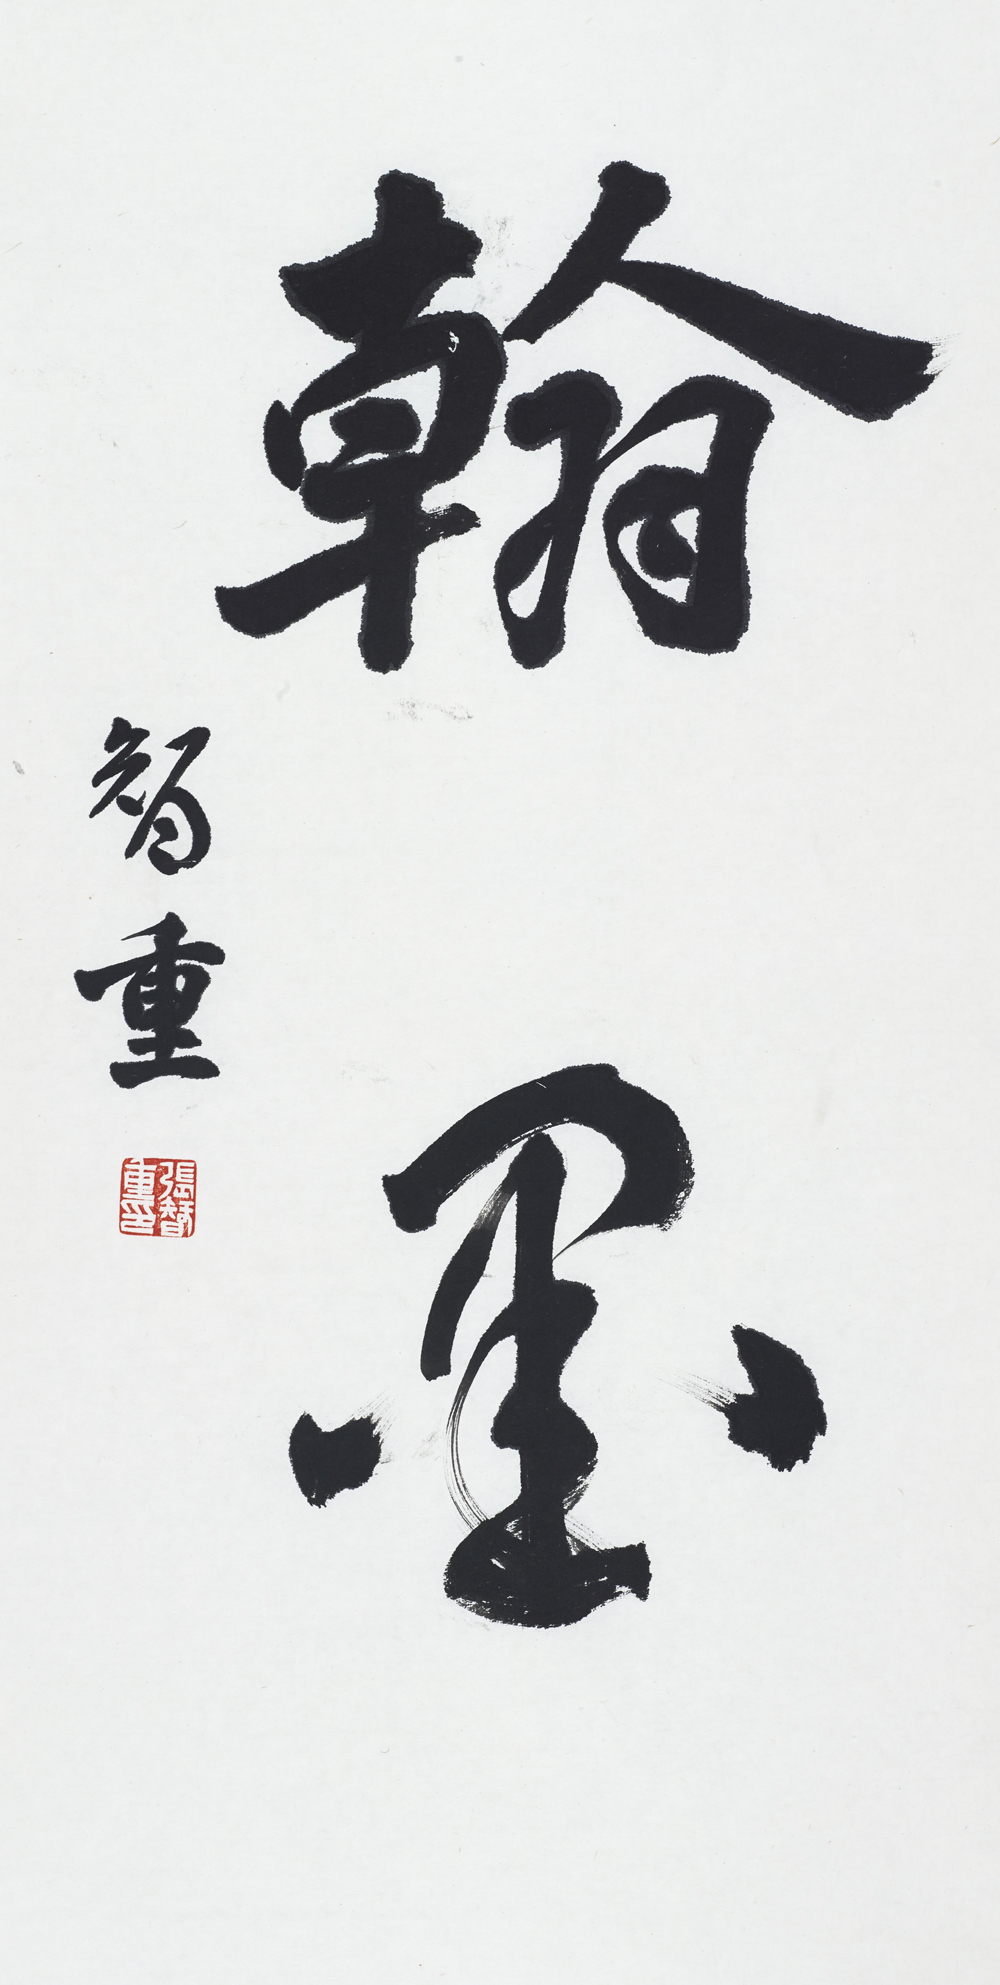 翰墨
智重
張智重印